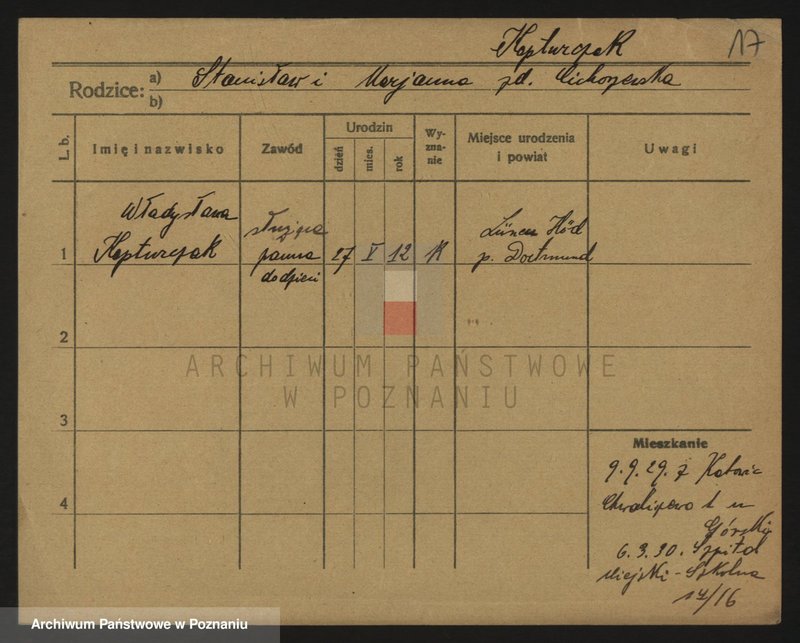 17
Kopturczak
Rodzice: a) Stanisław i Marjanna zd. Cichoszewska
b)
L. b. Imię i nazwisko Zawód Urodzin Wy-zna-nie Miejsce urodzenia i powiat Uwagi
dzień mies. rok
Władysława służąca
1 Kopturczak panna 27 V 12 R Lünen Höd
do dzieci p. Dortmund
2
ARCHIWUM PAŃSTWOWE
W POZNANIU
3
Mieszkanie
9.9.29. z
4
1 u
Górski
6.3.30. Szpital
Miejski - Szkolna
17/16
Archiwum Państwowe w Poznaniu